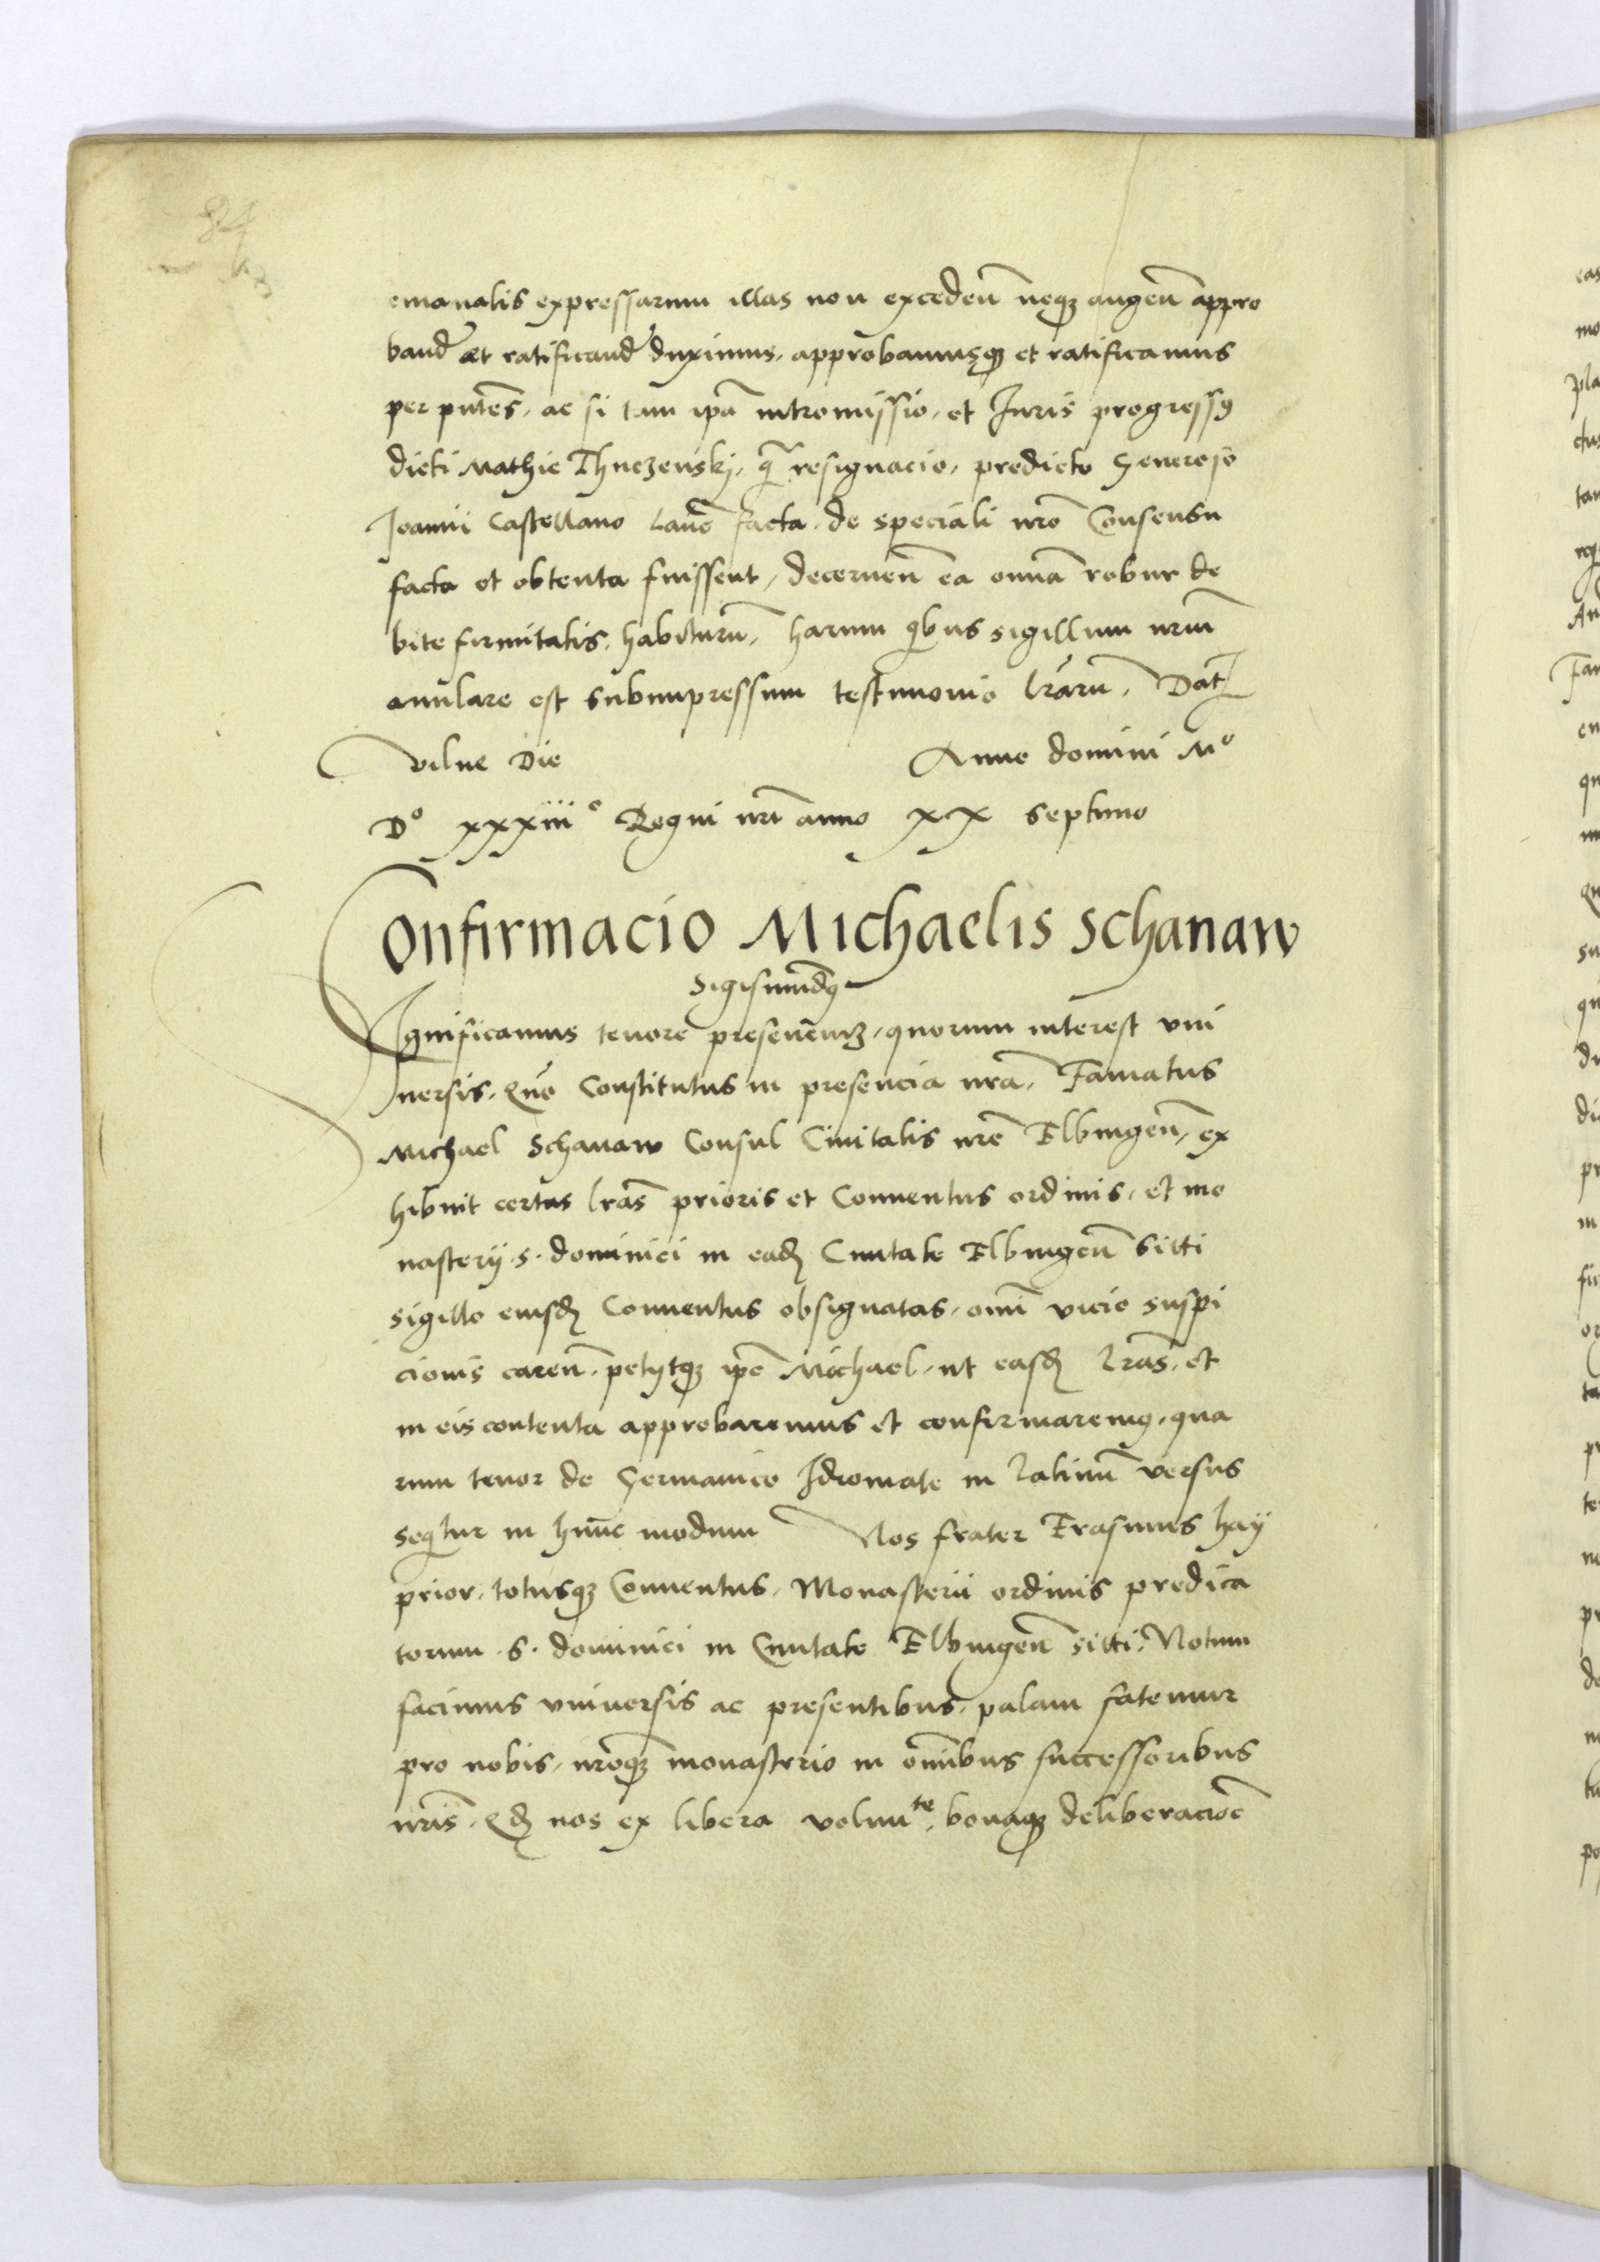 84
emanatis expressarum illas non exceden̄ neqȝ augen̄ appro
band̄ et ratificand̄ duximus, approbamusqȝ et ratificamus
per pñtes, ac si tam ipā intromissio, et Juris progressꝰ
dicti Mathie Thuczenskj, q̄ resignacio, predicto Generoso
Joanni Castellano Lanc̄ facta, de speciali nr̄o Consensu
facta et obtenta fuissent, decernen̄ ea omnia robur de
bite firmitatis, habitura, harum qibus sigillum nrm̄
anulare est subimpressum testimonio lrarū, Dat̄
Vilne Die Anno domini Mº
Dº xxxiiiº Regni nrī anno XX septimo
Confirmacio Michaelis Schanaw
Sigismūdꝰ
Significamus tenore presenciuȝ, quorum interest vni
uersis, Quō Constitutus in presencia nra, Famatus
Michael Schanaw Consul Ciuitatis nrē Elbingen̄, ex
hibuit certas lrās prioris et Conuentus ordinis, et mo
nasterij .s. dominici in eadꝫ Ciuitate Elbingen̄ sitti
sigillo eiusdꝫ Conuentus obsignatas, omī vicio suspi
cionis caren̄, petijtqȝ ipē Michael, ut easdꝫ lrās, et
in eis contenta approbaremus et confirmaremꝰ, qua
rum tenor de Germanico Idiomate in latinū versus
seqitur in hūc modum Nos frater Erasmus hay
prior, totusqȝ Conuentus, Monasterii ordinis predica
torum .S. dominici in Ciuitate Elbingen̄ sitti, Notum
facimus vniuersis ac presentibus, palam fatemur
pro nobis, nr̄oqȝ monasterio in om̄ibus successoribus
nrīs, Qdꝫ nos ex libera volunte, bonaqȝ deliberacioē